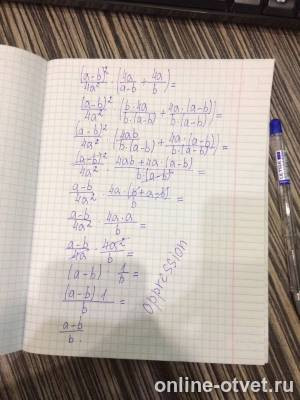 (a-b)²/4a² · (4a/a-b + 4a/b) =
(a-b)²/4a² · (b·4a/b·(a-b) + 4a·(a-b)/b·(a-b)) =
(a-b)²/4a² · (4ab/b·(a-b) + 4a·(a-b)/b·(a-b)) =
(a-b)²/4a² · 4ab+4a·(a-b)/b·(a-b) =
a-b/4a² · 4a·(b+a-b)/b =
a-b/4a² · 4a·a/b =
a-b/4a² · 4a²/b =
(a-b) · 1/b =
(a-b)·1/b =
a-b/b.
oppression
online-otvet.ru